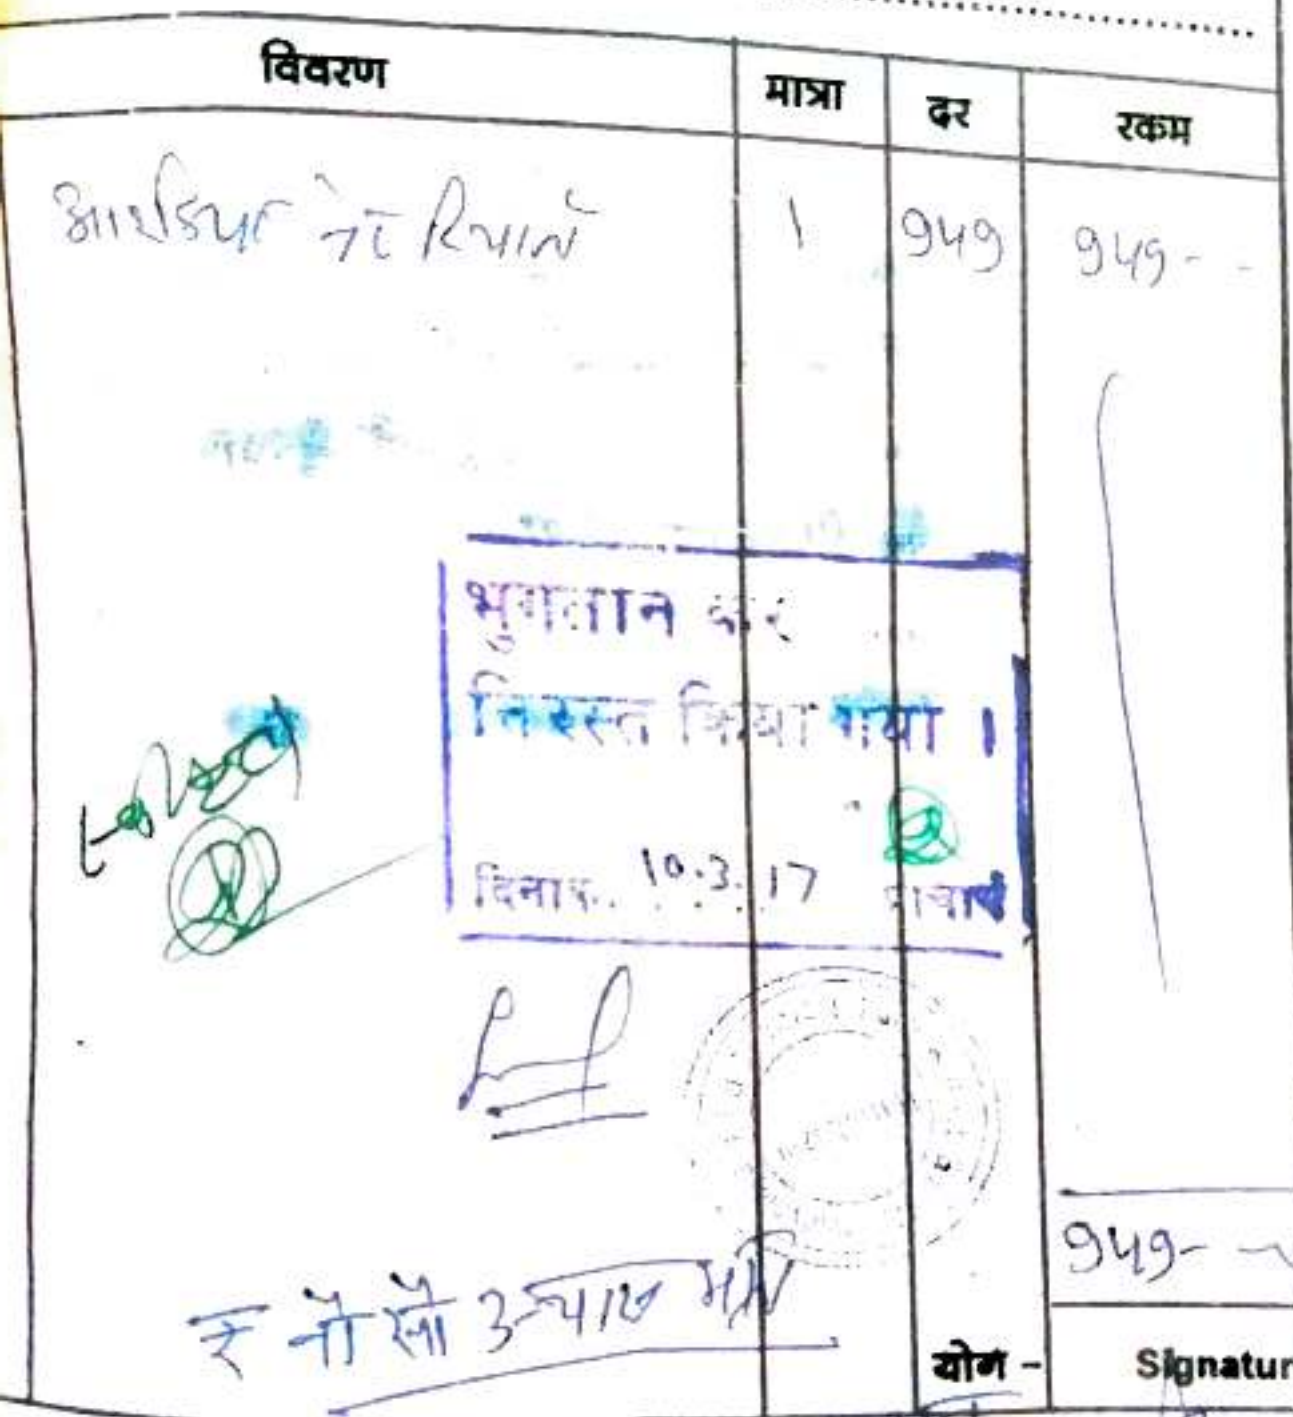 विवरण मात्रा दर रकम
आईडिया नेट रिचार्ज 1 949 949--
भुगतान कर
निरस्त किया गया ।
दिनांक. 10.3.17 प्राचार्य
949-
₹ नौ सौ उन्चास मात्र
योग - Signatur